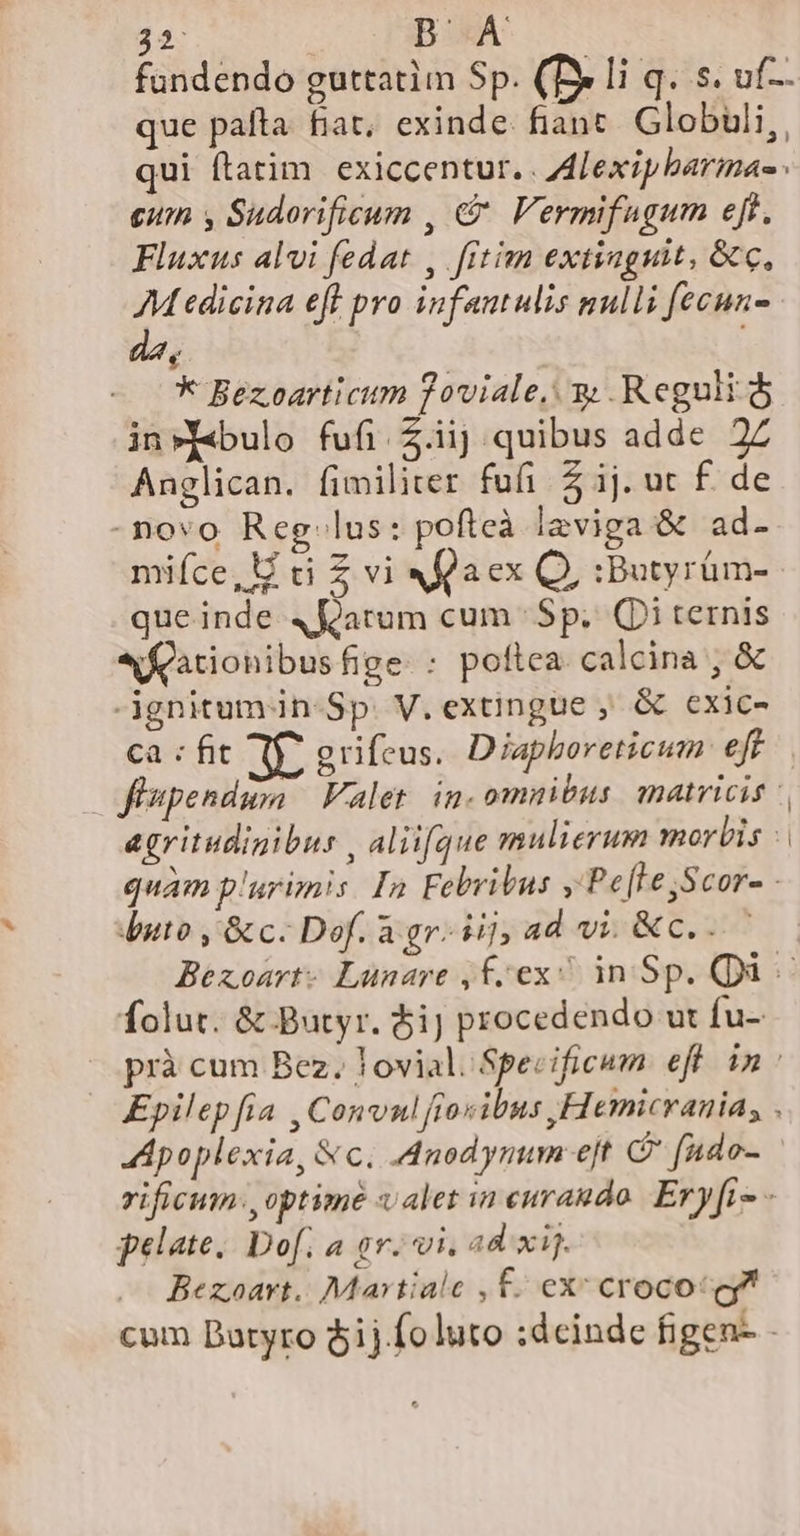 32 B A
fundendo guttatìm Sp. li q. s. uſ-
que paſta fiat, exinde fiant Globuli,
qui ſtatim exiccentur. Alexipharma-
cum, Sudorificum, & Vermifugum eſt.
Fluxus alvi ſedat, ſitim extinguit, &c,
Medicina eſt pro infantulis nulli ſecun-
da,
* Bezoarticum Joviale. ℞. Reguli ♁
in bulo fuſi ℥.iij quibus adde ♃
Anglican. ſimiliter fuſi ℥ ij. ut f. de
novo Regulus: poſteà læviga & ad-
miſce, ☿ ti ℥ vi a ex :Butyrúm-
que inde atum cum Sp. ternis
ationibus fige : poſtea calcina, &
ignitum in Sp V. extingue, & exic-
ca : fit griſeus. Diaphoreticum eſt
ſtupendum Valet in omnibus matricis
ægritudinibus, aliiſque mulierum morbis
quàm plurimis. In Febribus, Peſte, Scor-
buto, &c. Doſ. à gr. iij, ad vi. &c.
Bezoart. Lunare, f. ex in Sp.
ſolut. & Butyr. ♁ij procedendo ut ſu-
prà cum Bez. Iovial. Specificum eſt in
Epilepſia, Convulſionibus, Hemicrania,
Apoplexia, &c. Anodynum eſt & ſudo-
rificum, optimè valet in curando Eryſi-
pelate. Doſ. a gr. vi, ad xij.
Bezoart. Martiale, f. ex croco ♂
cum Butyro ♁ij ſoluto ; deinde figen-